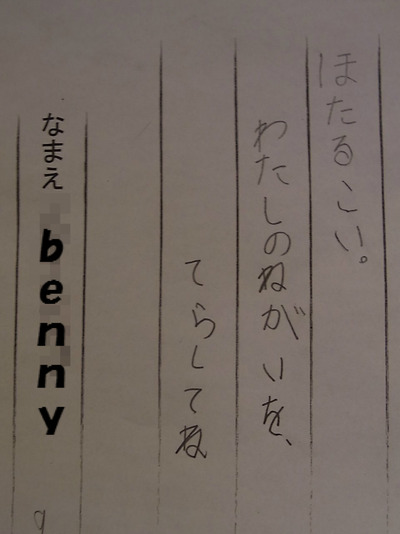 ほたるこい。
わたしのねがいを、
てらしてね
なまえ benny